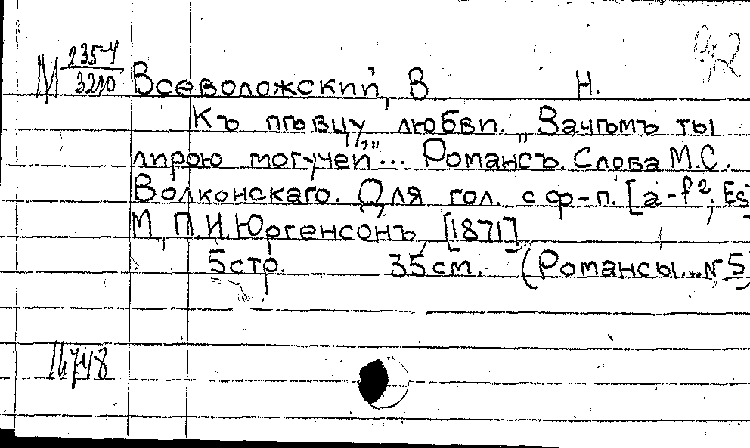 М 235-4/3210
Всеволожский, В Н.
Къ пѣвцу любви. „Зачѣмъ ты
лирою могучей"... Романсъ. Слова М.С.
Волконскаго. Для гол. с ф-п. [a-f²; Es]
М, П.И. Юргенсонъ, [1871]
5 стр. 35 см. (Романсы... №5)